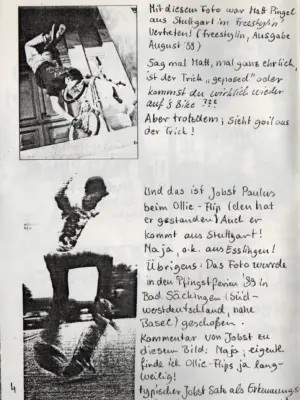 Mit diesem Foto war Matt Pingel
aus Stuttgart im Freestylin'
Vertreten! (Freestylin, Ausgabe
August '88)
Sag mal Matt, mal ganz ehrlich,
ist der Trick „geposed" oder
kommst du wirklich wieder
auf's Bike ???
Aber trotzdem; Sieht geil aus
der Trick!
Und das ist Jobst Paulus
beim Ollie-Flip (den hat
er gestanden) Auch er
kommt aus Stuttgart!
Naja, o.k. aus Esslingen!
Übrigens: Das Foto wurde
in den Pfingstferien '88 in
Bad Säckingen (Süd-
westdeutschland, nähe
Basel) geschoßen.
Kommentar von Jobst zu
diesem Bild: Naja, eigentl.
finde ich Ollie-Flips ja lang-
weilig!
typischer Jobst Satz als Erkennungs-
4